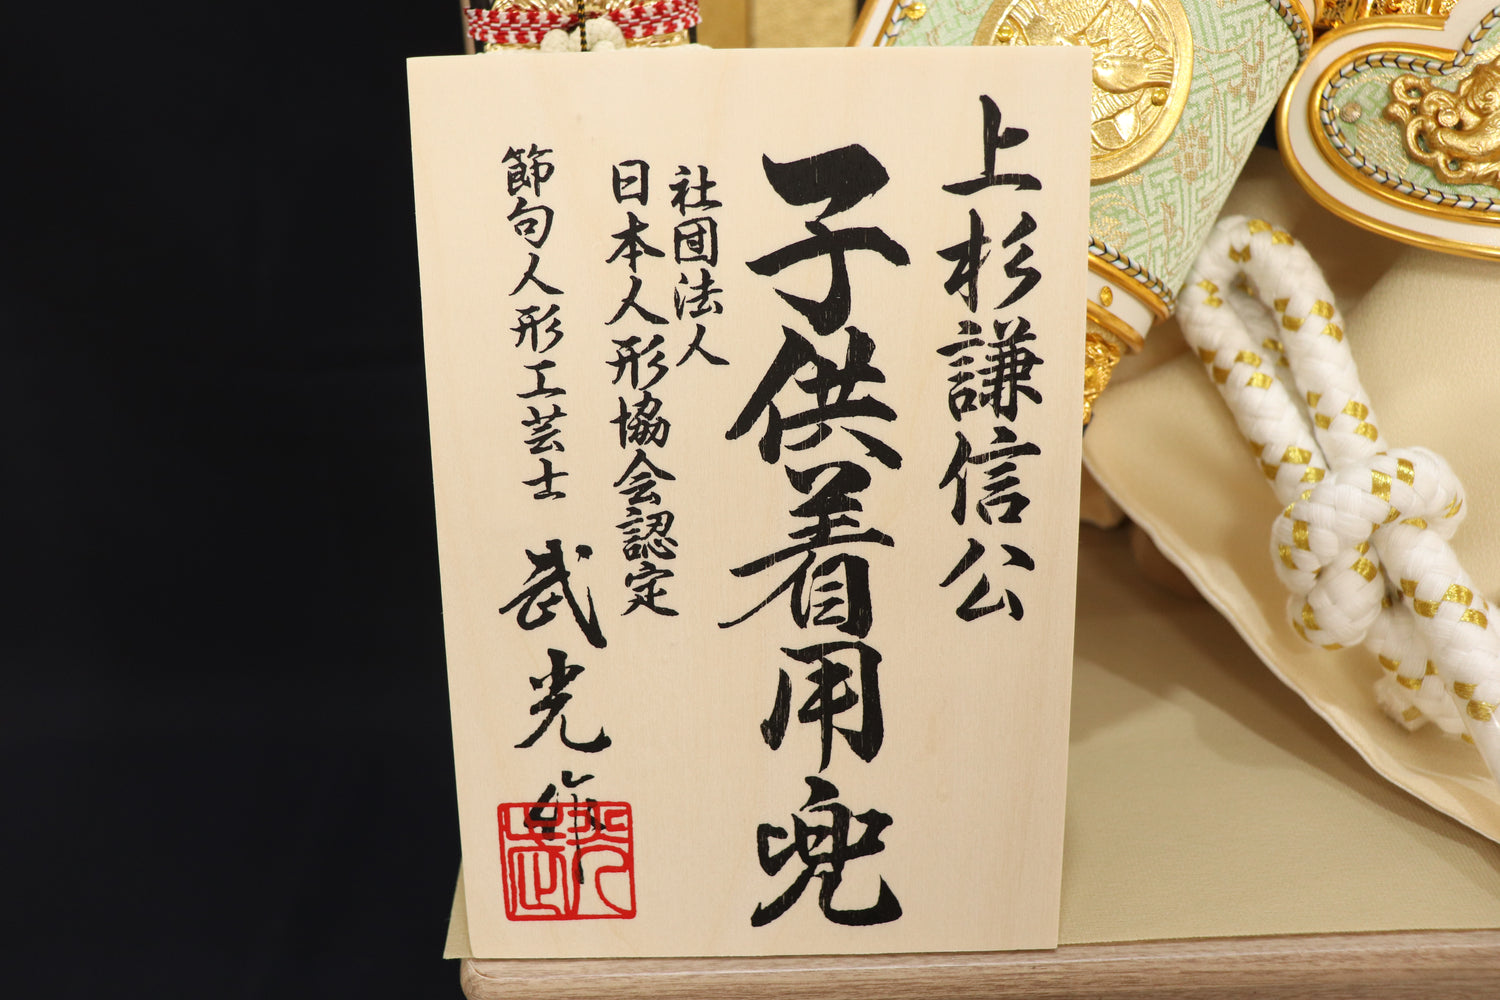 上杉謙信公
子供着用兜
社団法人
日本人形協会認定
節句人形工芸士 武光作
武光